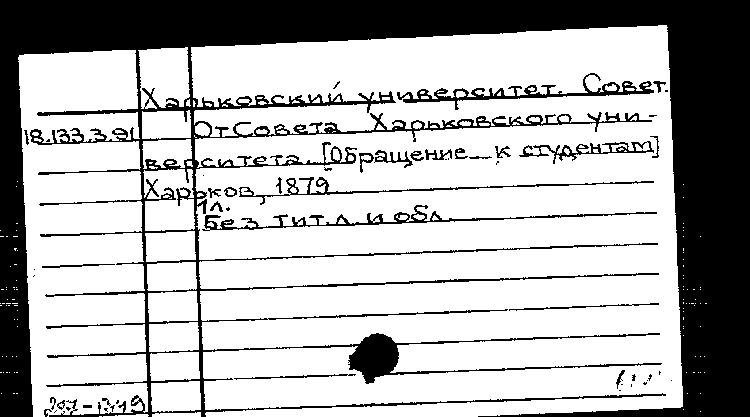 Харьковский университет. Совет.
18.133.3.91 От Совета Харьковского уни-
верситета. [Обращение к студентам]
Харьков, 1879
1л.
Без тит. л. и обл.